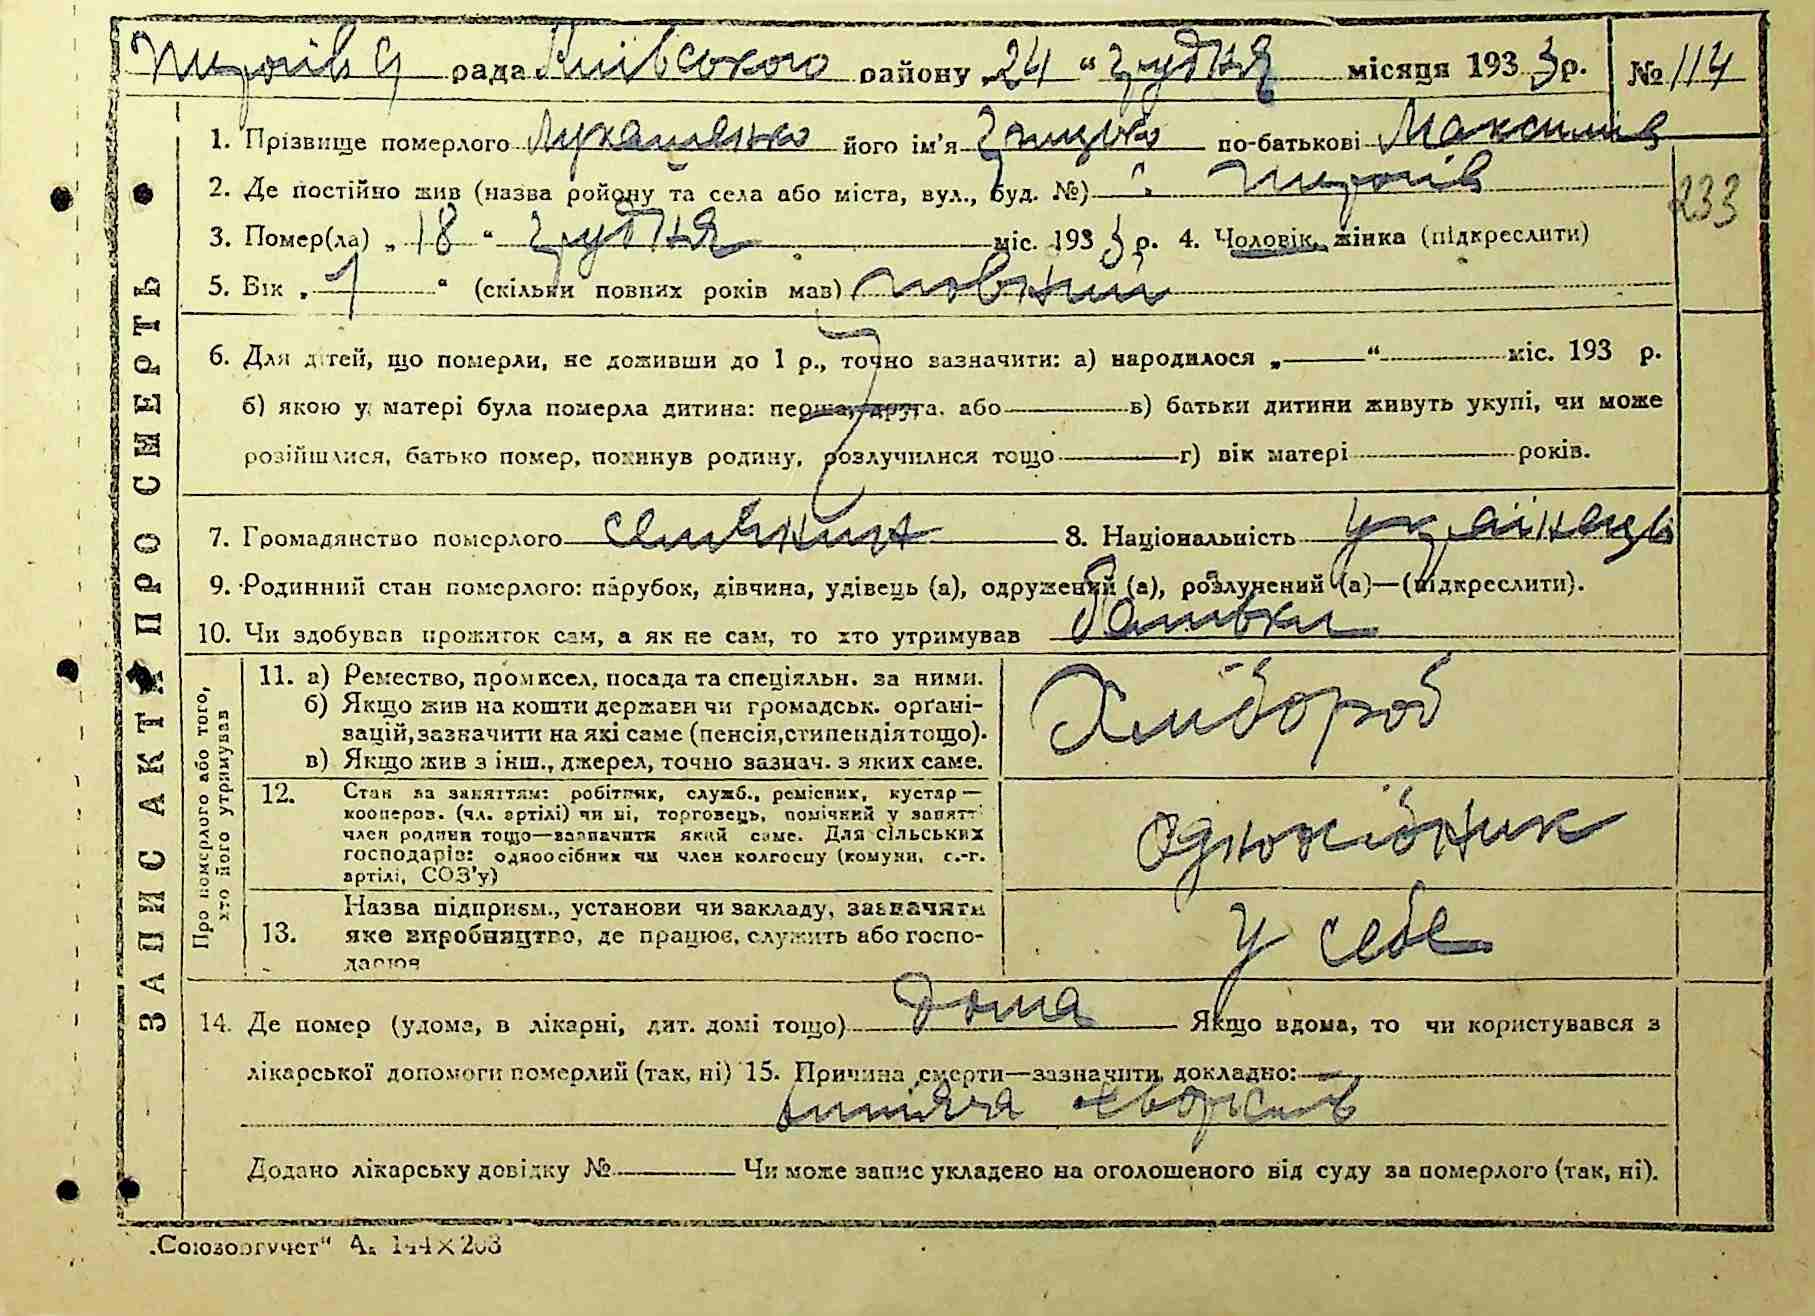 Пирогівс рада Київського району 24 "грудня місяця 1933р. № 114
1. Прізвище померлого Лукашенко його ім'я Грицько по-батькові Максимів
2. Де постійно жив (назва ройону та села або міста, вул., буд. №) с. Пирогів
233
3. Помер(ла) „ 18 " грудня міс. 1933 р. 4. Чоловік, жінка (підкреслити)
5. Вік „ 1 " (скільки повних років мав) повний
6. Для дітей, що померли, не доживши до 1 р., точно зазначити: а) народилося „ — " міс. 193 р.
б) якою у матері була померла дитина: перша, друга, або — в) батьки дитини живуть укупі, чи може
розійшлися, батько помер, покинув родину, розлучилися тощо — г) вік матері — років.
7. Громадянство померлого селянин 8. Національність українець
9. Родинний стан померлого: парубок, дівчина, удівець (а), одружений (а), розлучений (а)—(підкреслити).
10. Чи здобував прожиток сам, а як не сам, то хто утримував батьки
ЗАПИС АКТА ПРО СМЕРТЬ
Про померлого або того, хто його утримував
11. а) Ремество, промисел, посада та спеціяльн. за ними.
б) Якщо жив на кошти держави чи громадськ. орґані-
зацій, зазначити на які саме (пенсія, стипендія тощо).
в) Якщо жив з інш., джерел, точно зазнач. з яких саме.
Хлібороб
12. Стан за заняттям: робітник, служб., ремісник, кустар—
кооперов. (чл. артілі) чи ні, торговець, помічний у занятт
член родини тощо—зазначити який саме. Для сільських
господарів: одноосібник чи член колгоспу (комуни, с.-г.
артілі, СОЗ'у)
одноосібник
13. Назва підприєм., установи чи закладу, зазначити
яке виробництво, де працює, служить або госпо-
дарює
у себе
14. Де помер (удома, в лікарні, дит. домі тощо) дома Якщо вдома, то чи користувався з
лікарської допомоги померлий (так, ні) 15. Причина смерти—зазначити докладно:
дитяча
Додано лікарську довідку № — Чи може запис укладено на оголошеного від суду за померлого (так, ні).
„Союзоргучет" А. 144×203